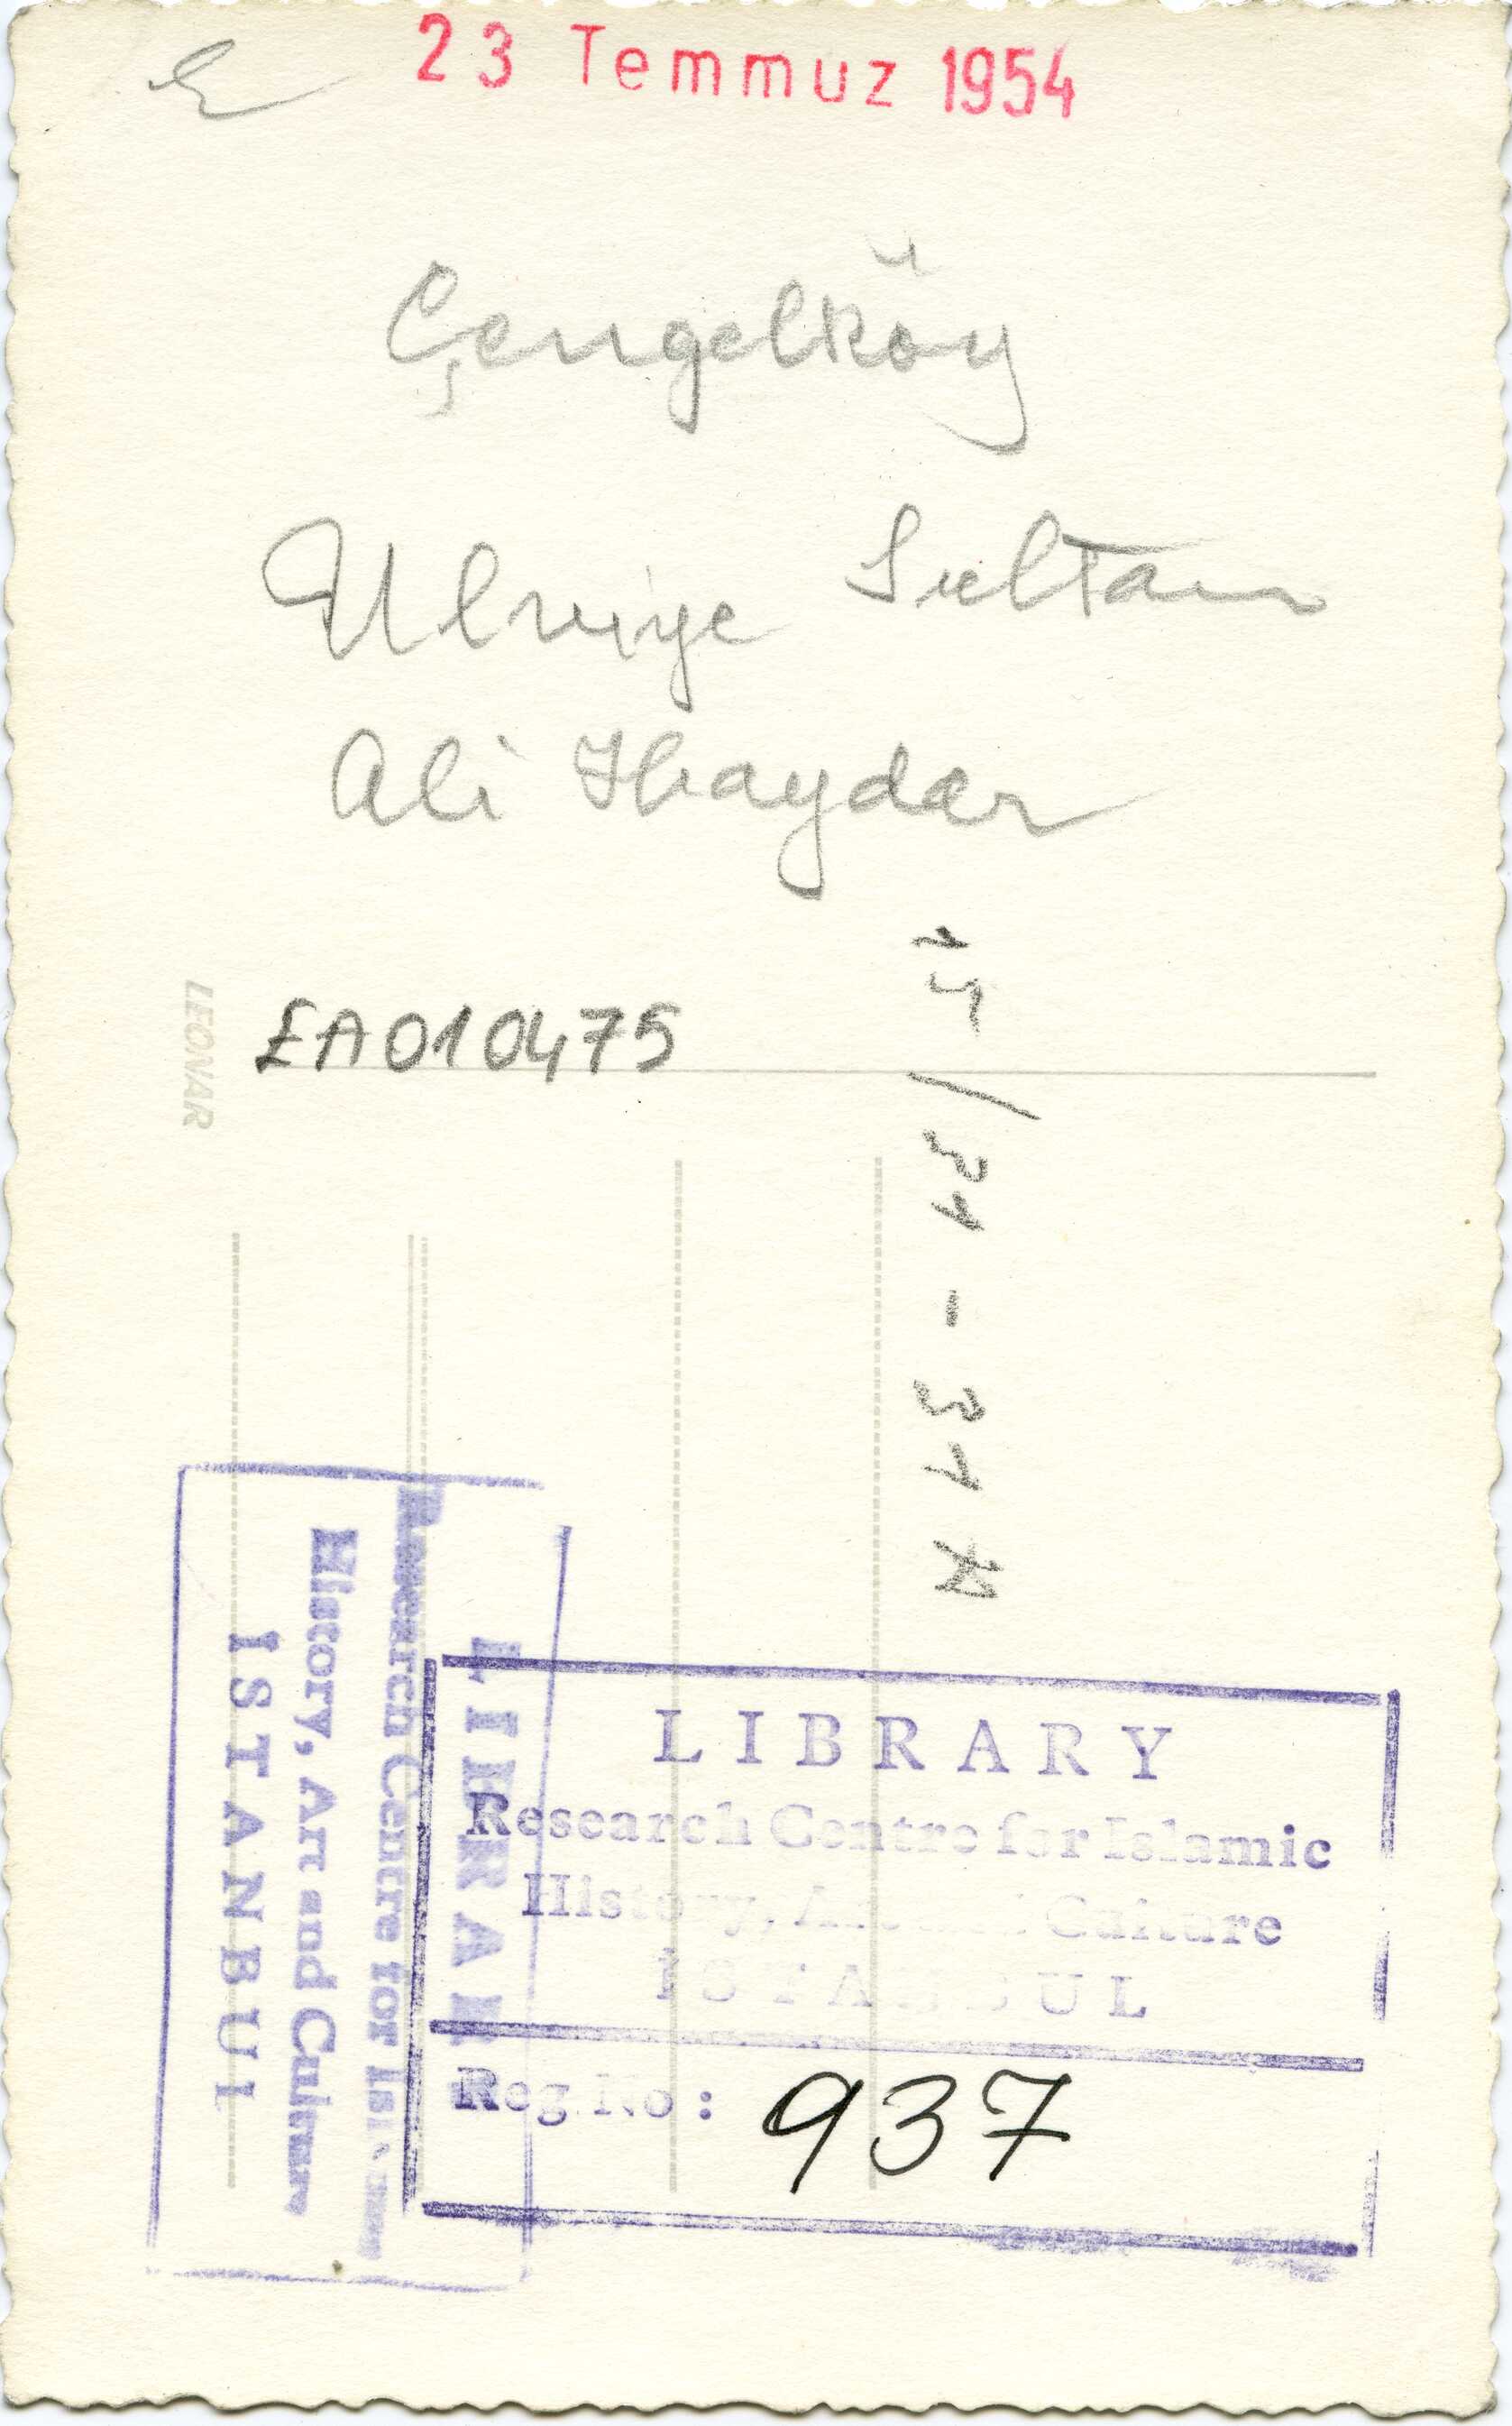 23 Temmuz 1954
Çengelköy
Ulviye Sultan
Ali Haydar
LEONAR
EA010475
LIBRARY
Research Centre for Islamic
History, Art and Culture
ISTANBUL
Reg. No: 937
LIBRAR
Research Centre for
History, Art and Culture
ISTANBUL